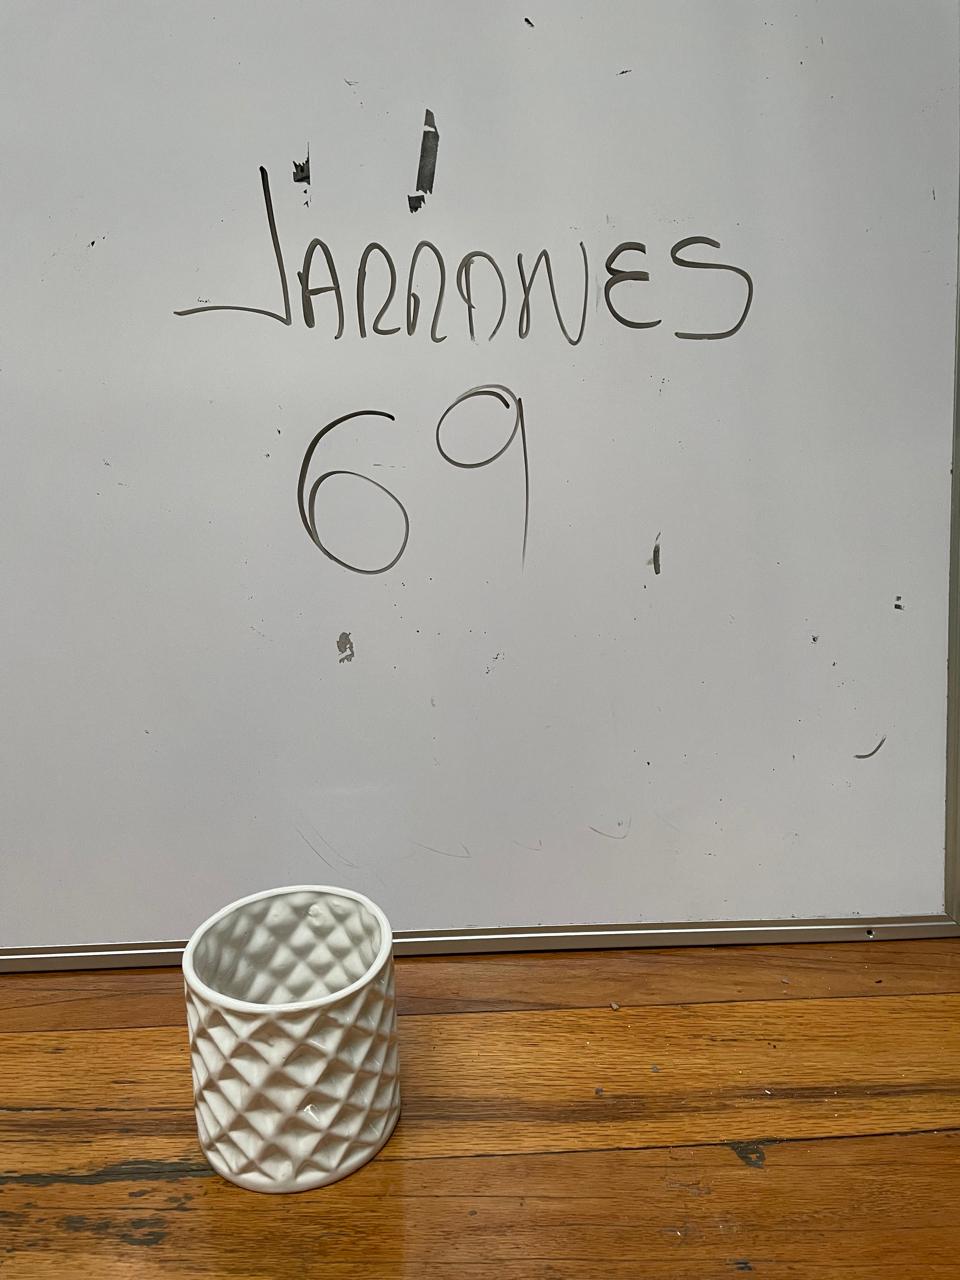 JARRONES
69